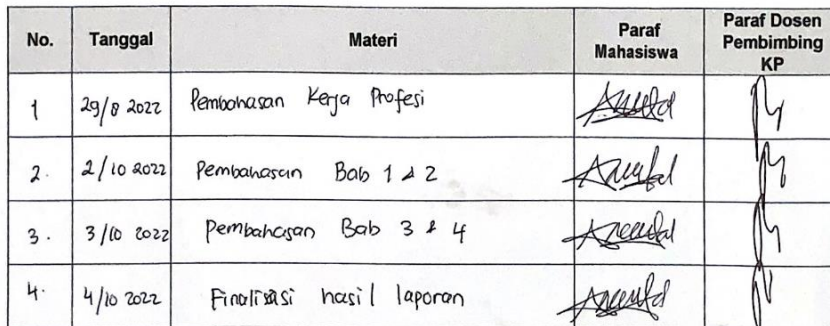 No. Tanggal Materi Paraf Mahasiswa Paraf Dosen Pembimbing KP
1 29/8 2022 Pembahasan Kerja Profesi
2. 2/10 2022 Pembahasan Bab 1 & 2
3. 3/10 2022 Pembahasan Bab 3 & 4
4. 4/10 2022 Finalisasi hasil laporan